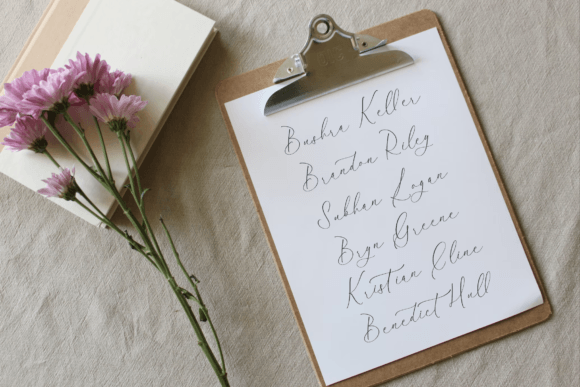 Bushra Keller
Brandon Riley
Subhan Logan
Bryn Greene
Kristian Cline
Benedict Hull